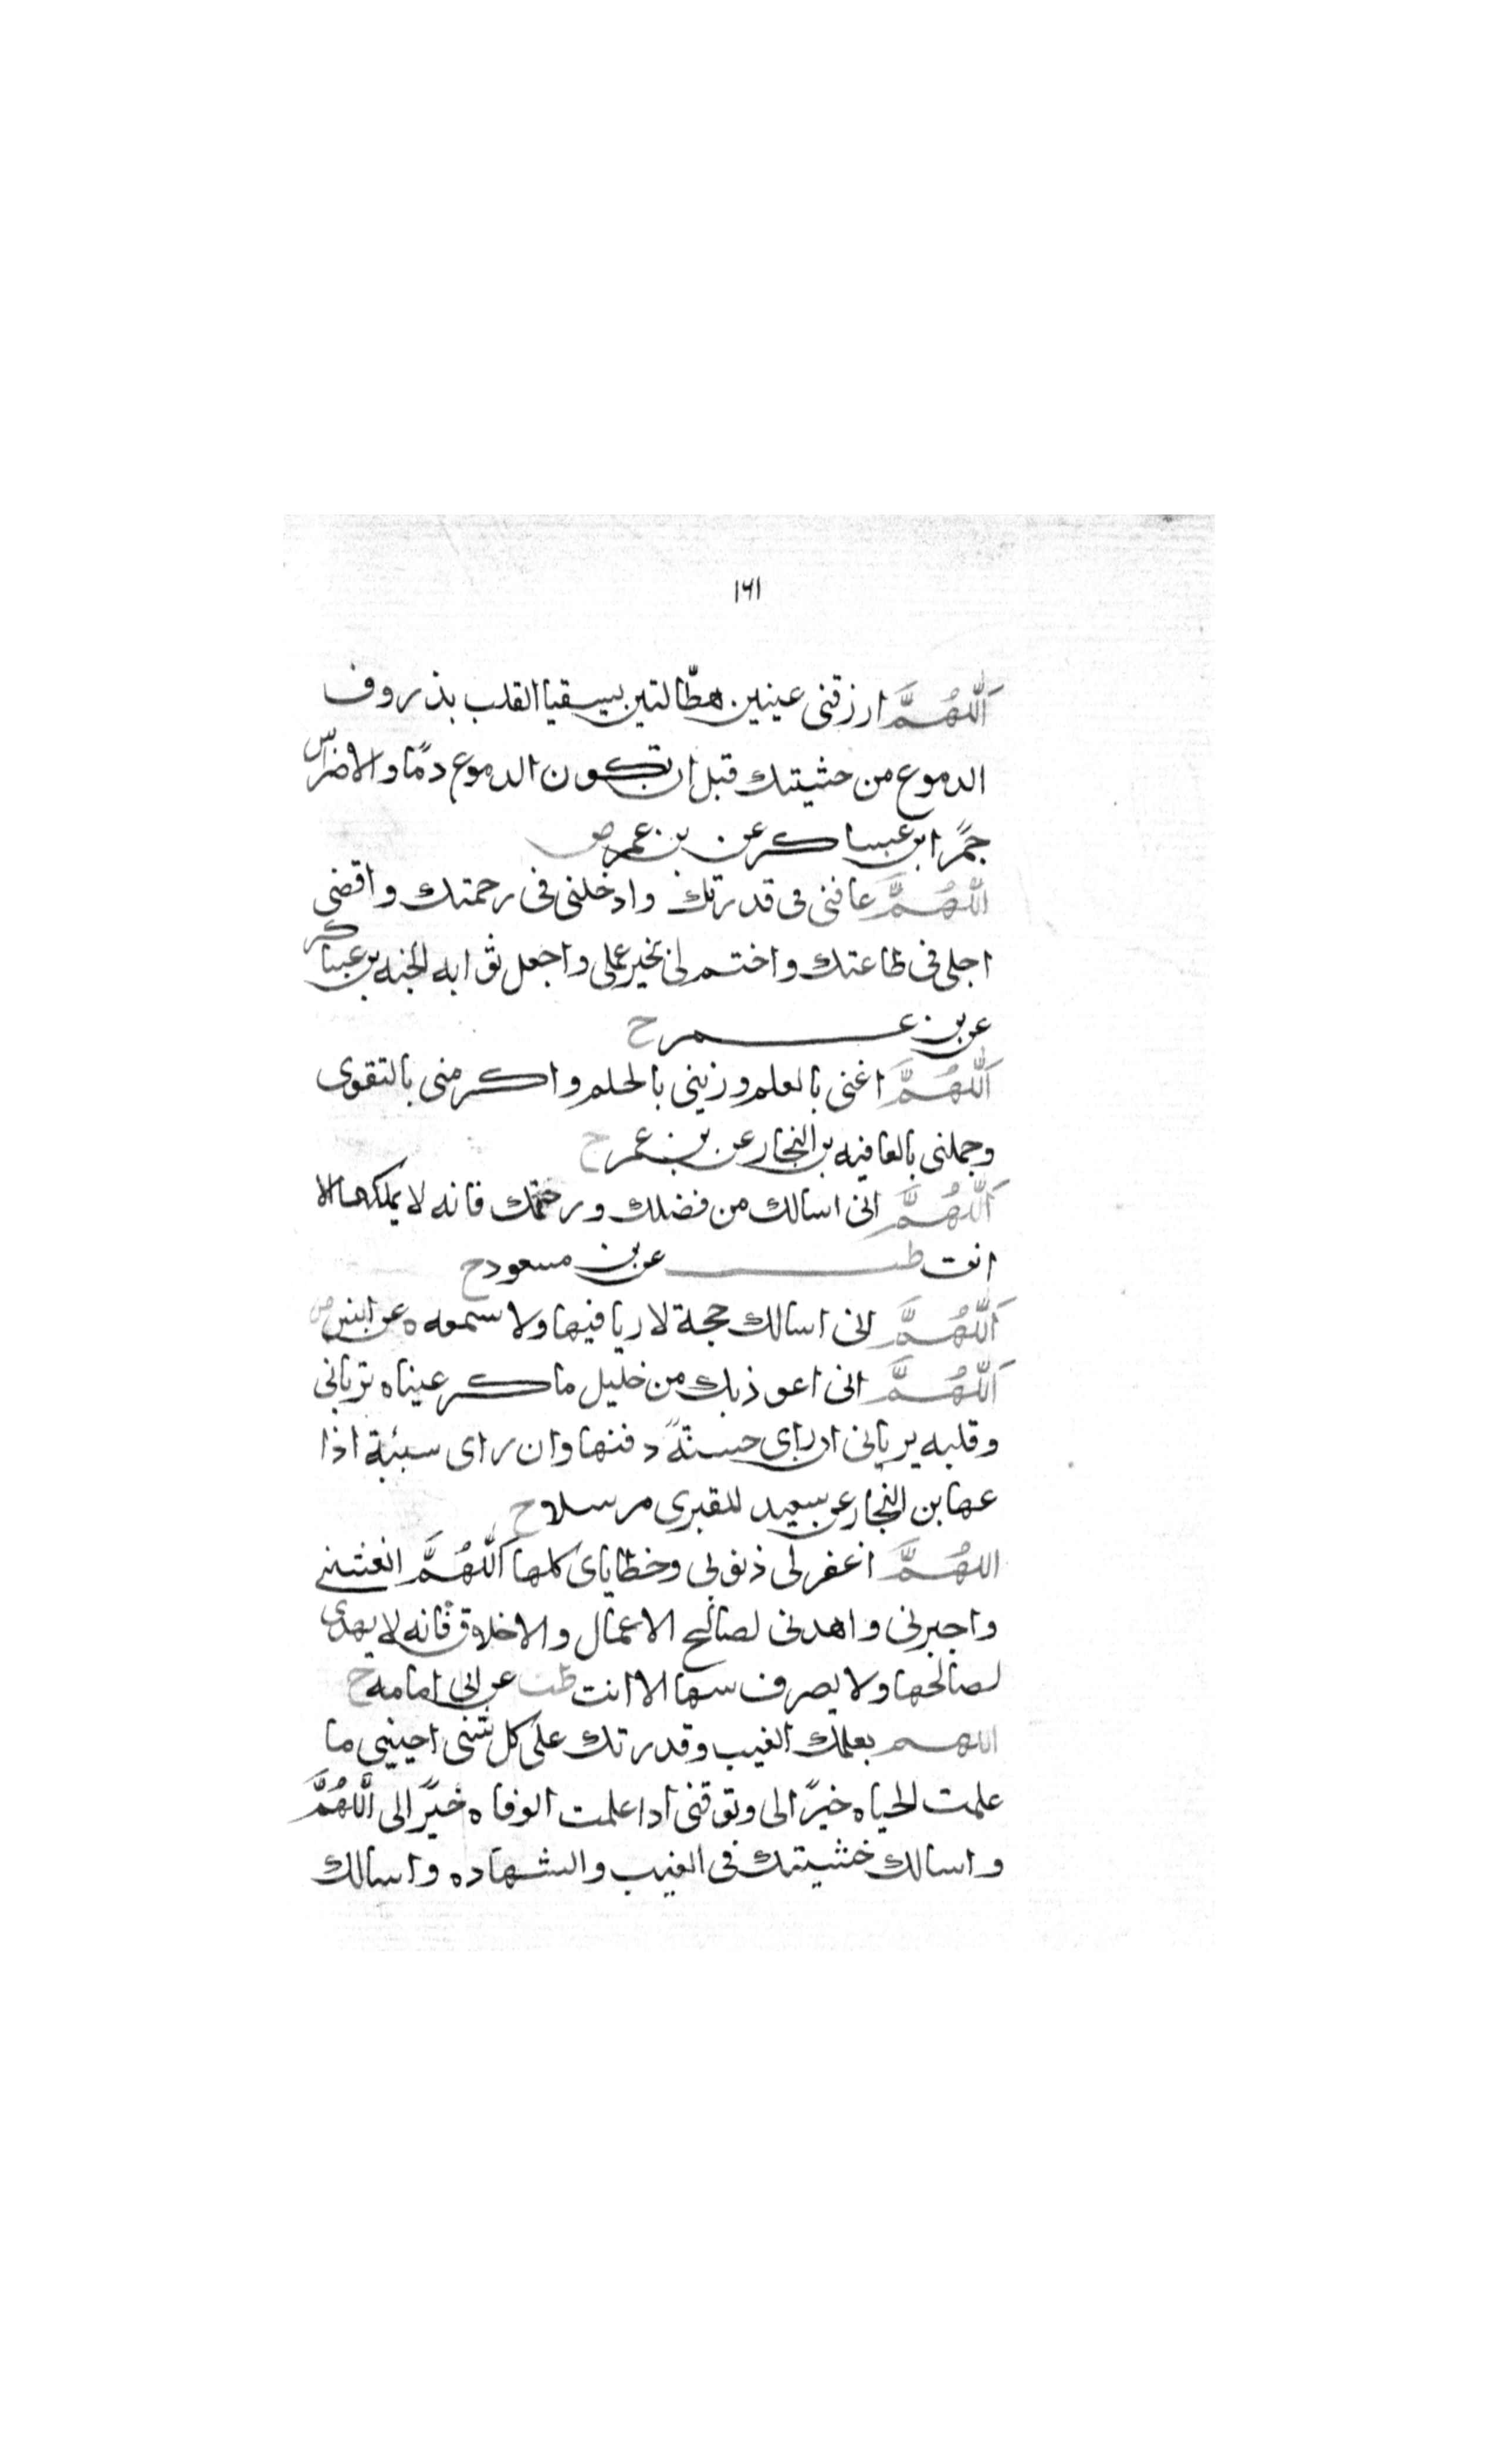 ١٦١
اَللّٰهُمَّ ارزقنى عينين هطّالتين يسقيا القلب بذروف
الدموع من خشيتك قبل ان تكون الدموع دمًا والاضراس
جمرًا ابن عساكر عن بن عمر ض
اللّٰهُمَّ عافنى فى قدرتك وادخلنى فى رحمتك واقضى
اجلى فى طاعتك واختم لى بخير عملى واجعل ثوابه الجنه بن عساكر
عن بن عمر ح
اَللّٰهُمَّ اغنى بالعلم وزينى بالحلم واكرمنى بالتقوى
وجملنى بالعافيه بن النجار عن بن عمر ح
اَللّٰهُمَّ انى اسالك من فضلك ورحمتك فانه لا يملكها الا
انت طب عن بن مسعود ح
اَللّٰهُمَّ انى اسالك حجة لا ريا فيها ولا سمعه ه عن انس ض
اَللّٰهُمَّ انى اعوذ بك من خليل ماكر عيناه ترياني
وقلبه يريانى ان راى حسنةً دفنها وان راى سيئة اذا
عها بن النجار عن سعيد المقبرى مرسلا ح
اللهُمَّ اغفرلى ذنوبى وخطاياى كلها اَللّٰهُمَّ انعشنى
واجبرنى واهدنى لصالح الاعمال والاخلاق فانه لا يهدى
لصالحها ولا يصرف سيها الا انت طب عن ابى امامه ح
اللهم بعلمك الغيب وقدرتك على كل شى احينى ما
علمت الحياه خيرًا لى وتوفنى اذا علمت الوفاه خيرًا لى اَللّٰهُمَّ
واسالك خشيتك فى الغيب والشهاده واسالك